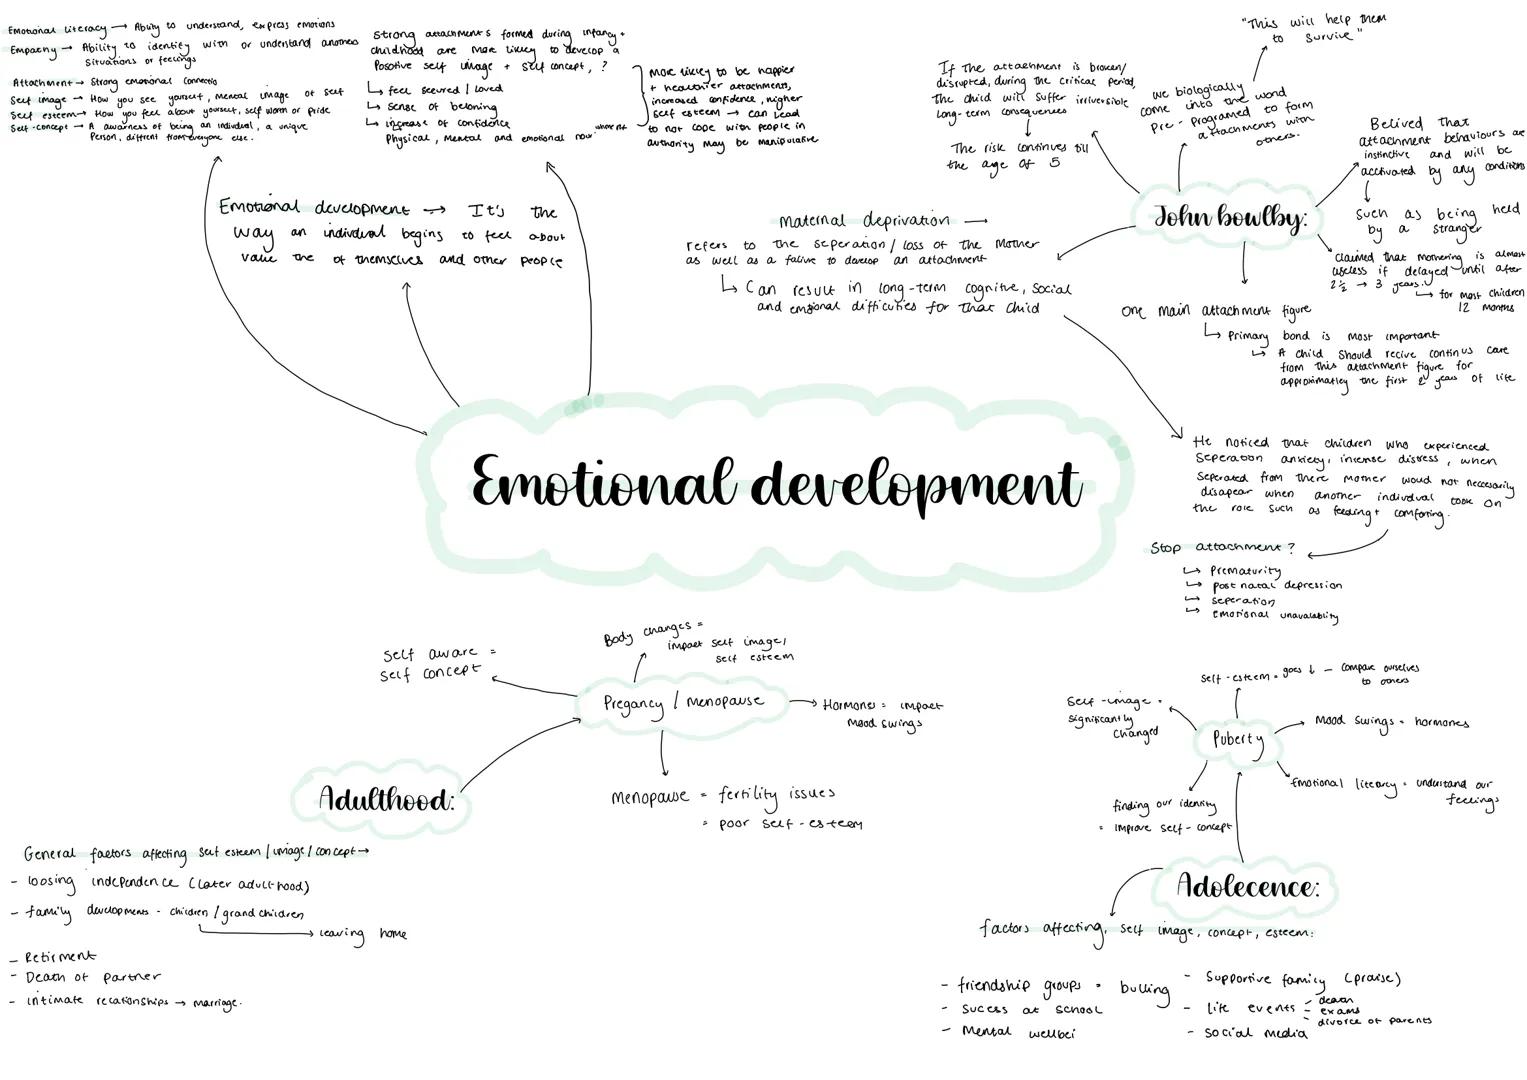 Emotional literacy → Ability to understand, express emotions
Empathy → Ability to identity with or understand anothers
situations or feelings
Attachment → Strong emotional connectio
Self image → How you see yourself, mental image of self
Self esteem → How you feel about yourself, self worth or pride
Self-concept → A awareness of being an individual, a unique
Person, diffrent from everyone else.
Strong attachments formed during infancy +
childhood are more likely to develop a
Posotive self image + self concept, ?
↳ feel secured / loved
↳ sense of beloning
↳ increase of confidence
Physical, Mental and emotional now
More likely to be happier
+ healthier attachments,
increased confidence, higher
self esteem → can lead
to not cope with people in
authority may be manipulative
Emotional development → It's the
way an individual begins to feel about
value the of themselves and other people
Emotional development
"This will help them
to survive"
we biologically
come into the word
pre-programed to form
attachments with
others.
If the attachment is broken/
disrupted, during the critical period,
the child will suffer irriversible
long-term consequences
The risk continues till
the age of 5
Belived that
attachment behaviours are
instinctive and will be
acctivated by any conditions
such as being held
by a stranger
John bowlby:
Claimed that mothering is almost
useless if delayed until after
2½ → 3 years.
↳ for most children
12 months
Maternal deprivation →
refers to the seperation / loss of the mother
as well as a failure to develop an attachment
↳ Can result in long-term cognitive, social
and emotional difficulties for that child
one main attachment figure
↳ Primary bond is most important
↳ A child should recive continus care
from this attachment figure for
approximatley the first 2 years of life
He noticed that children who experienced
Seperation anxiety, intense distress, when
Seperated from there mother would not necessarily
disapear when another individual took on
the role such as feeding + comforting.
Stop attachment?
↳ Prematurity
↳ post natal depression
↳ seperation
↳ emotional unavalability
Body changes =
impact self image /
self esteem
Self aware =
self concept
Pregancy / menopause
Hormones = impact
mood swings
Menopause = fertility issues
= poor self-esteem
Adulthood:
General factors affecting self esteem / image / concept →
- loosing independence (later adulthood)
- family developments - children / grand children
→ leaving home
- Retirment
- Death of partner
- intimate relationships → marriage.
self-esteem = goes ↓ - compare ourselves
to others
Self-image =
significantly
changed
Puberty
Mood swings = hormones
Emotional literacy = understand our
feelings
finding our identity
= improve self-concept
Adolecence:
factors affecting, self image, concept, esteem:
- friendship groups = bulling
- sucess at school
- Mental wellbei
- Supportive family (praise)
- life events - death
- exams
- divorce of parents
- social media